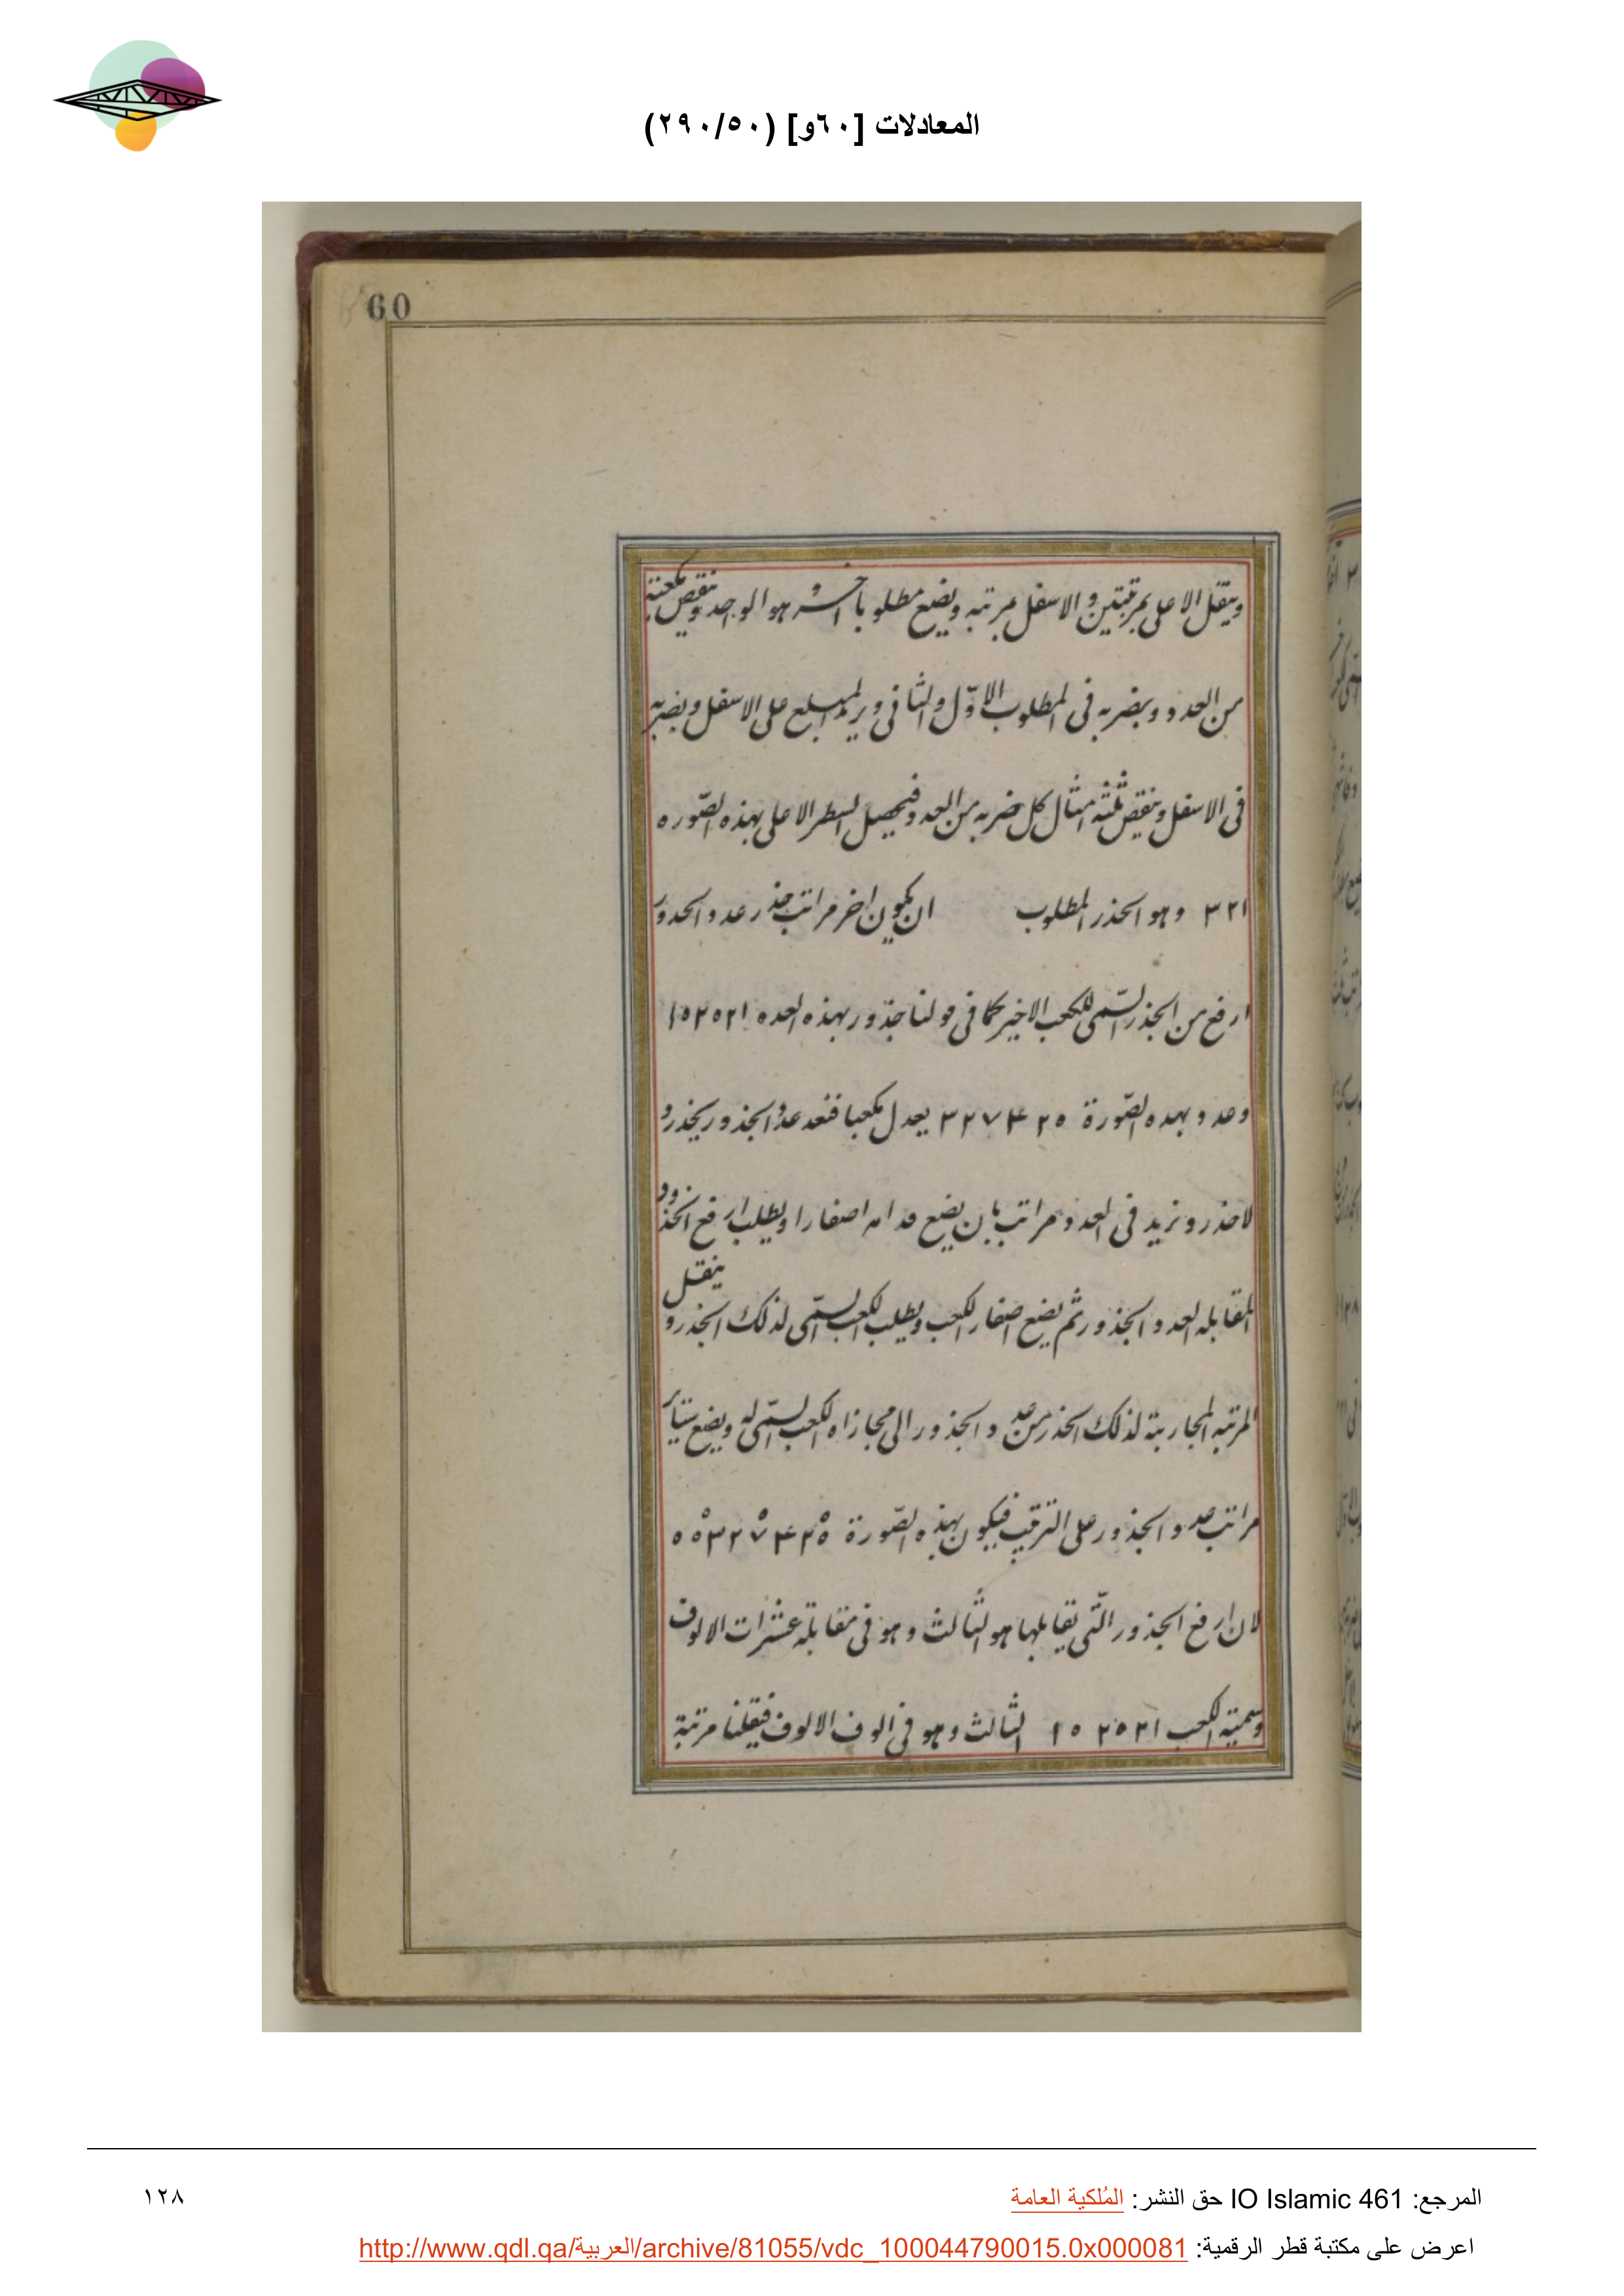 المعادلات [٦٠و] (٢٩٠/٥٠)
60
وينقل الاعلى بمرتبتين والاسفل بمرتبه ويضع مطلوبا آخر هو الواحد وينقص مكعبه
من العدد ويضربه فى المطلوب الاوّل والثانى ويزيد المبلغ على الاسفل ويضربه
فى الاسفل وينقص ثلثه امثال كل ضربه من العدد فيحصل السطر الاعلى بهذه الصّوره
٣٢١ وهو الجذر المطلوب ان يكون اخر مراتب جذر عدد الجذور
ارفع من الجذر السّمى للكعب الاخير كما فى قولنا جذور بهذه العده ١٥٢٥٢١
وعدد بهده الصّورة ٣٢٧٤٢٥ يعدل مكعبا فنعد عدد الجذور بجذر و
لا جذر ونزيد فى العدد مراتب بان يضع قدامه اصفارا ويطلب ارفع الجذور
المقابله لعدد الجذور ثم يضع اصفار الكعب ويطلب الكعب السّمى لذلك الجذر و ينقل
المرتبه المحاربة لذلك الجذر من عدد الجذور الى مجازاه الكعب السّمى له ويضع سائر
مراتب عدد الجذور على الترتيب فيكون بهذه الصّورة
لان ارفع الجذور الّتى يقابلها هو الثالث وهو فى مقابلة عشرات الالوف
وسمية الكعب ١٥٢٥٢١ الثالث وهو فى الوف الالوف فيقلنا مرتبة
المرجع: IO Islamic 461 حق النشر: المُلكية العامة
١٢٨
اعرض على مكتبة قطر الرقمية: http://www.qdl.qa/العربية/archive/81055/vdc_100044790015.0x000081